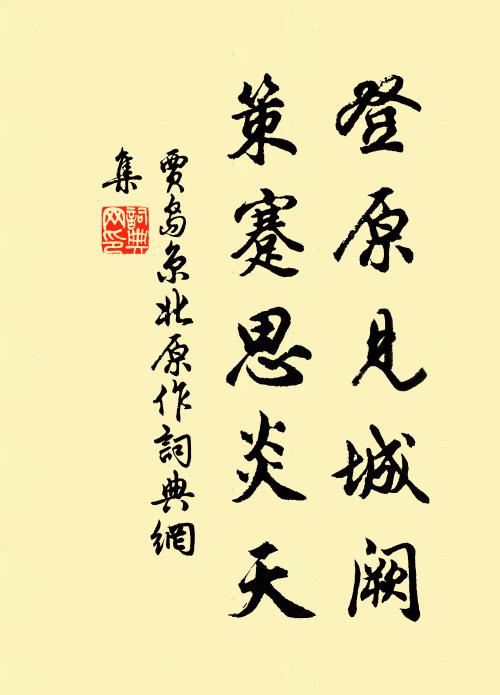 登原見城闕
策蹇思炎天
賈島京北原作詞典網
集
詞典
网印